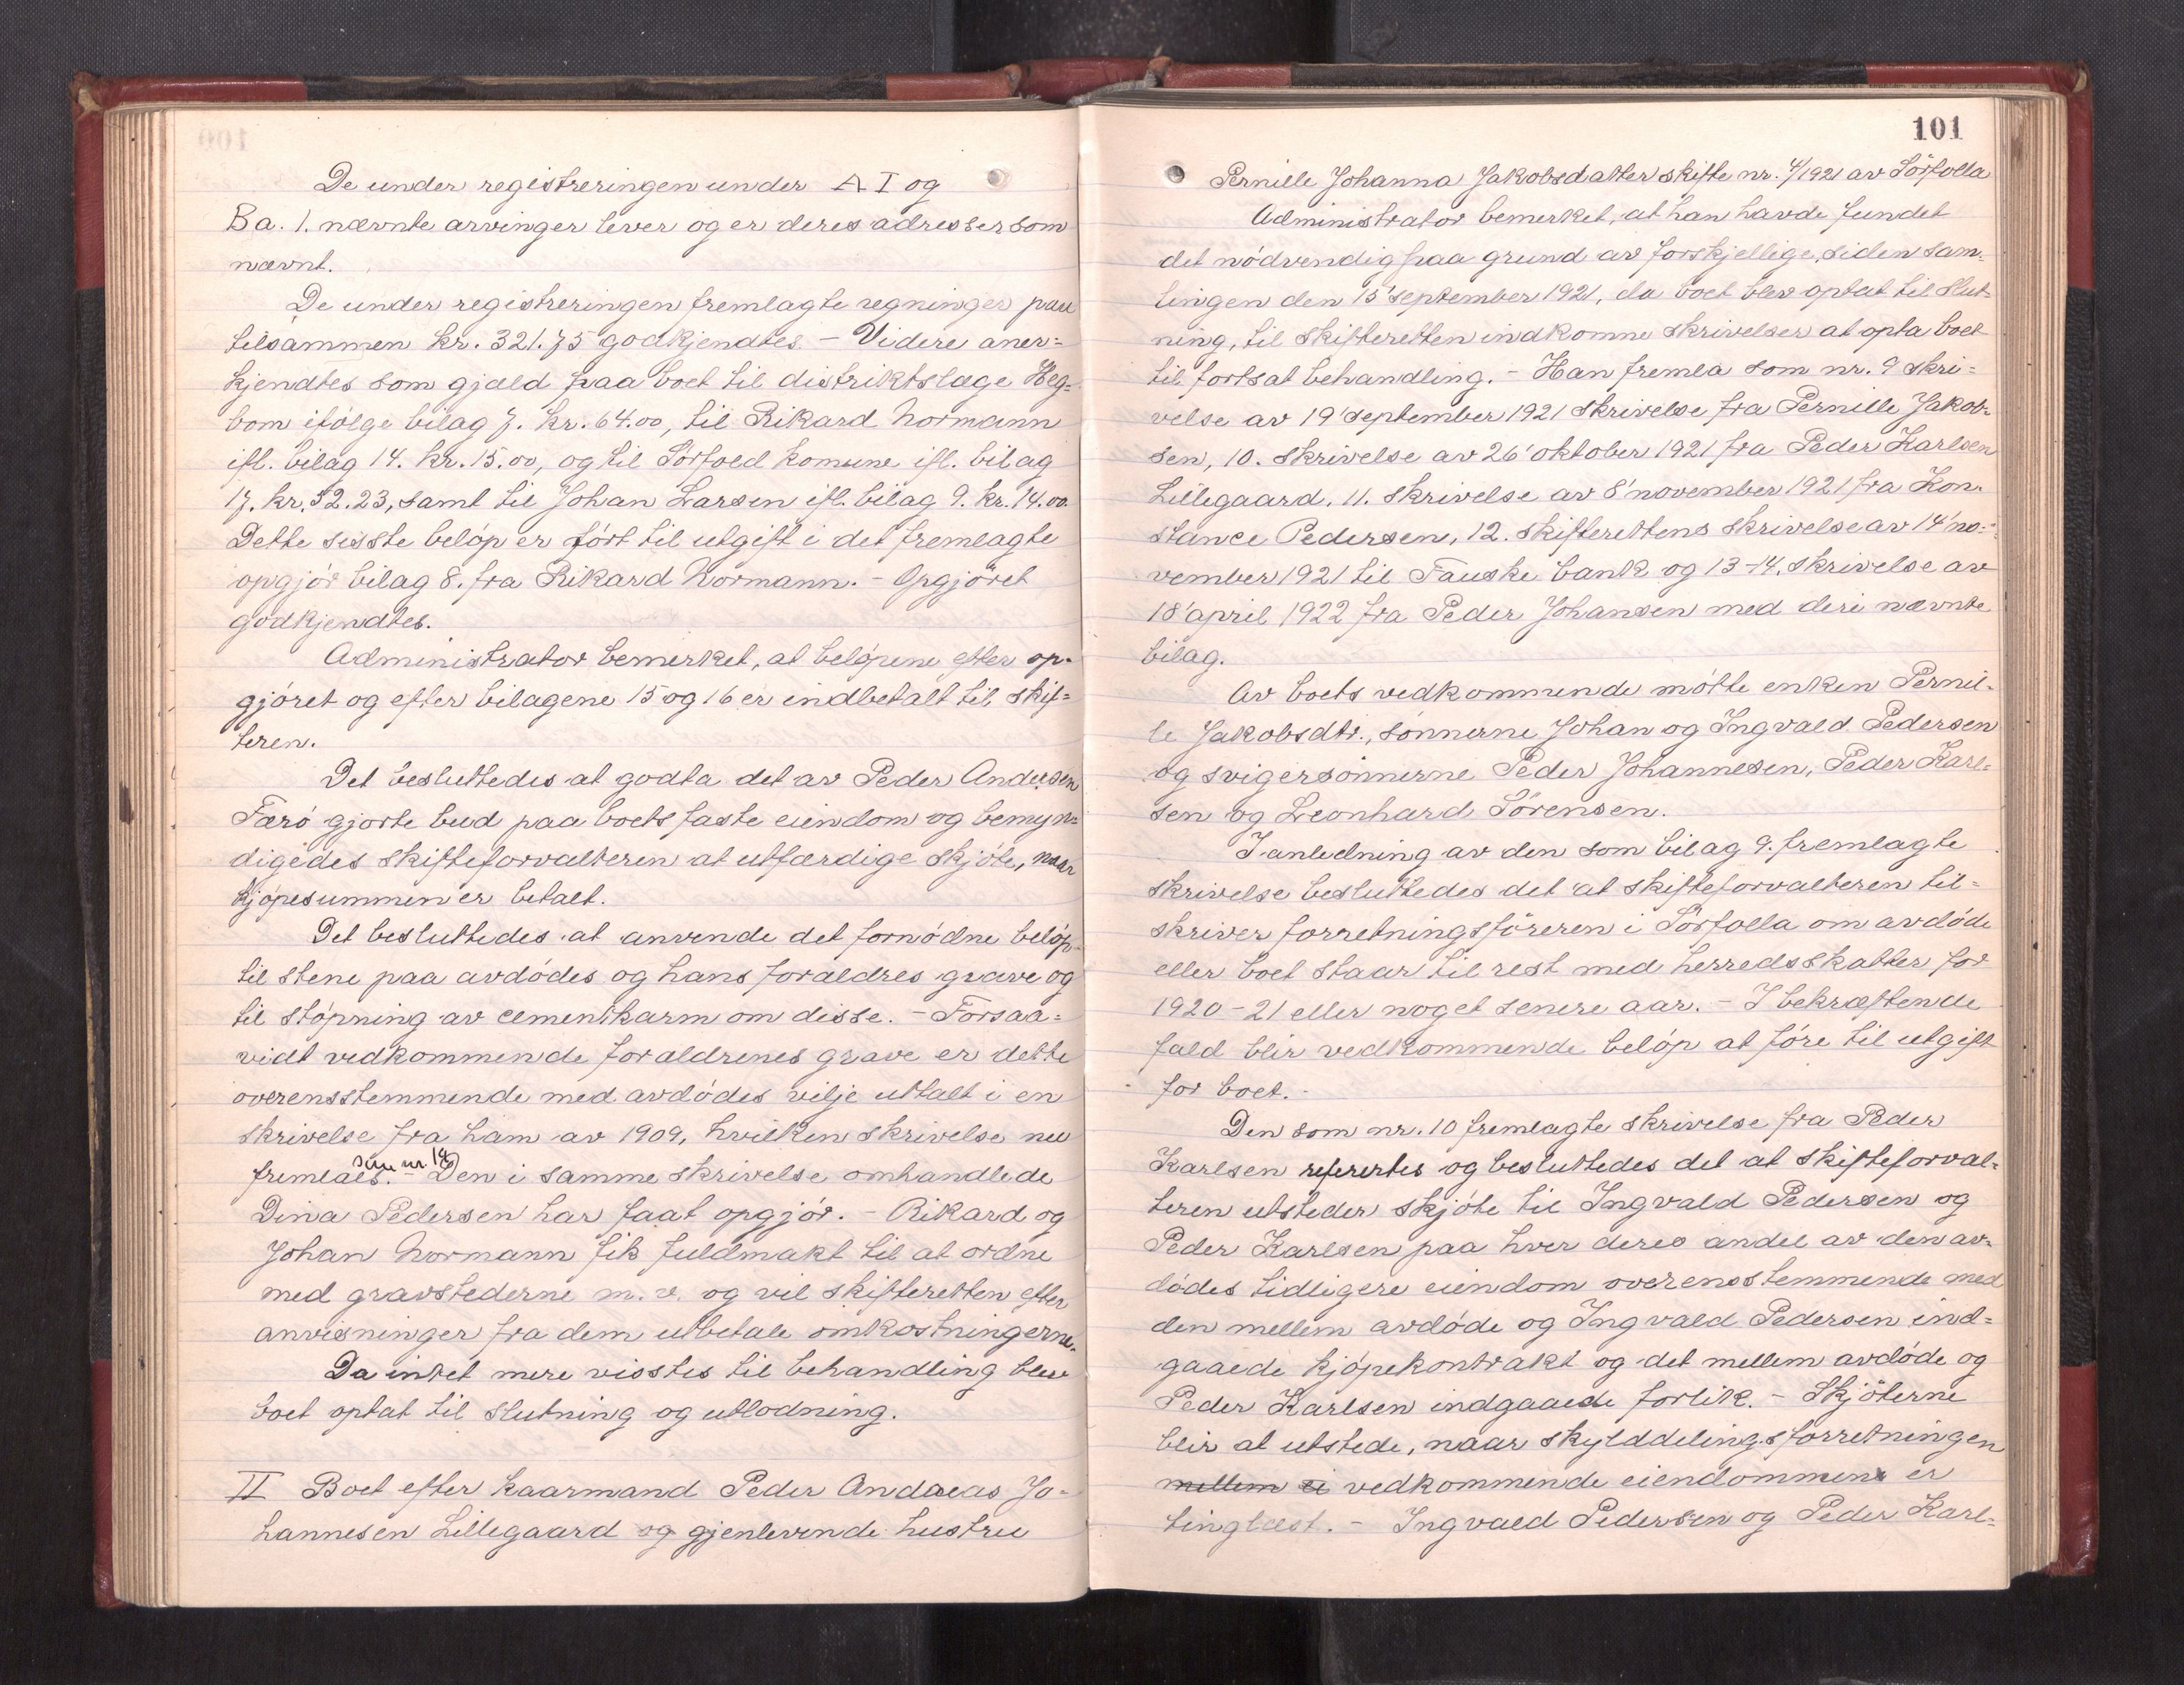 De under registreringen under A I og
Ba. 1. nævnte arvinger lever og er deres adresser som
nævnt.
De under registreringen fremlagte regninger paa
tilsammen kr. 321.75 godkjendtes. - Videre aner=
kjendtes som gjæld paa boet til distriktslæge Heg=
bom ifölge bilag 7. kr. 64.00, til Rikard Normann
ifl. bilag 14. kr. 15.00, og til Sörfold komune ifl. bilag
17. kr. 52.23, samt til Johan Larsen ifl. bilag 9. kr. 14.00.
Dette sisste belöp er fört til utgift i det fremlagte
opgjör bilag 8. fra Rikard Normann. - Opgjöret
godkjendtes.
Administrator bemerket, at belöpene efter op-
gjöret og efter bilagene 15 og 16 er indbetalt til skif=
teren.
Det besluttedes at godta det av Peder Andersen
Færö gjorte bud paa boets faste eiendom og bemyn=
digedes skifteforvalteren at utfærdige skjöte, naar
kjöpesummen er betalt.
Det besluttedes at anvende det fornödne belöp
til stene paa avdödes og hans foraldres grave og
til stöpning av cementkarm om disse. - Forsaa=
vidt vedkommende foraldrenes grave er dette
overensstemmende med avdödes vilje uttalt i en
skrivelse fra ham av 1909, hvilken skrivelse nu
som nr. 18
fremlaes. - Den i samme skrivelse omhandlede
Dina Pedersen har faat opgjör. - Rikard og
Johan Normann fik fuldmakt til at ordne
med gravstederne m. v. og vil skifteretten efter
anvisninger fra dem utbetale omkostningerne.
Da intet mere visstes til behandling blev
boet optat til slutning og utlodning.
II Boet efter kaarmand Peder Andreas Jo-
hannesen Lillegaard og gjenlevende hustru
101
Pernille Johanna Jakobsdatter skifte nr. 4/1921 av Sörfolla
Administrator bemerket, at han havde fundet
det nödvendig paa grund av forskjellige, siden sam-
lingen den 15' september 1921, da boet blev optat til slut-
ning, til skifteretten indkomne skrivelser at opta boet
til fortsat behandling. - Han fremla som nr. 9 skri=
velse av 19' september 1921 skrivelse fra Pernille Jakob-
sen, 10. skrivelse av 26' oktober 1921 fra Peder Karlsen
Lillegaard. 11. skrivelse av 8' november 1921 fra Kon-
stance Pedersen, 12. skifterettens skrivelse av 14' no-
vember 1921 til Fauske bank og 13-14. skrivelse av
18' april 1922 fra Peder Johansen med deri nævnte
bilag.
Av boets vedkommende mötte enken Pernil-
le Jakobsdtr., sönnerne Johan og Ingvald Pedersen
og svigersönnerne Peder Johannesen, Peder Karl=
sen og Leonhard Sörensen.
I anledning av den som bilag 9. fremlagte
skrivelse besluttedes det at skifteforvalteren til=
skriver forretningsföreren i Sörfolla om avdöde
eller boet staar til rest med herredsskatter for
1920-21 eller noget senere aar. - I bekræftende
fald blir vedkommende belöp at före til utgift
for boet. -
Den som nr. 10 fremlagte skrivelse fra Peder
Karlsen refertes og besluttedes det at skifteforval=
teren utsteder skjöte til Ingvald Pedersen og
Peder Karlsen paa hver deres andel av den av-
dödes tidligere eiendom overensstemmende med
den mellem avdöde og Ingvald Pedersen ind=
gaaede kjöpekontrakt og det mellem avdöde og
Peder Karlsen indgaaede forlik. - Skjöterne
blir at utstede, naar skylddelingsforretningen
mellem ei vedkommende eiendommen er
tinglæst. - Ingvald Pedersen og Peder Karl=